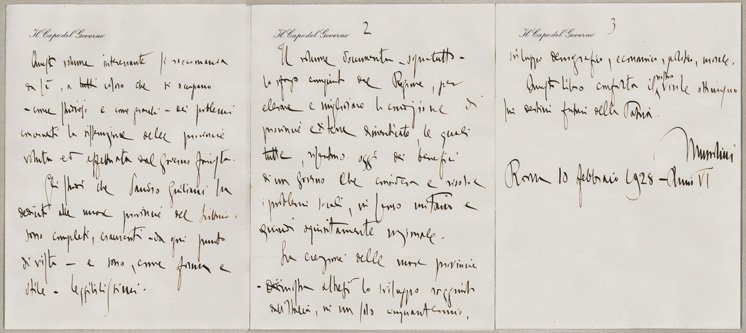 Il Capo del Governo
Questo volume interessante si raccomanda
da sé, a tutti coloro che si occupano
- come studiosi e come - dei problemi
concernenti la sistemazione delle provincie
voluta ed effettuata dal governo fascista.
Gli studi che Sandro Giuliani ha
dedicati alle nuove provincie del
sono completi, esaurienti - da ogni punto
di vista - e sono, come forma e
stile - leggibilissimi.
Il Capo del Governo
2
Il volume documenta - soprattutto -
lo sforzo compiuto dal Regime, per
elevare e migliorare la condizione di
provincie ed terre dimenticate, le quali
tutte, risentono oggi dei benefici
di un governo che considera e risolve
i problemi locali, in senso unitario e
quindi squisitamente nazionale.
La creazione delle nuove provincie
- dimostra altresì lo sviluppo raggiunto
dall'Italia, in un solo cinquantennio,
Il Capo del Governo
3
sviluppo demografico, economico, politico, morale.
Questo libro conforta il nostro virile ottimismo
sui destini futuri della Patria.
Mussolini
Roma 10 febbraio 1928 - Anno VI